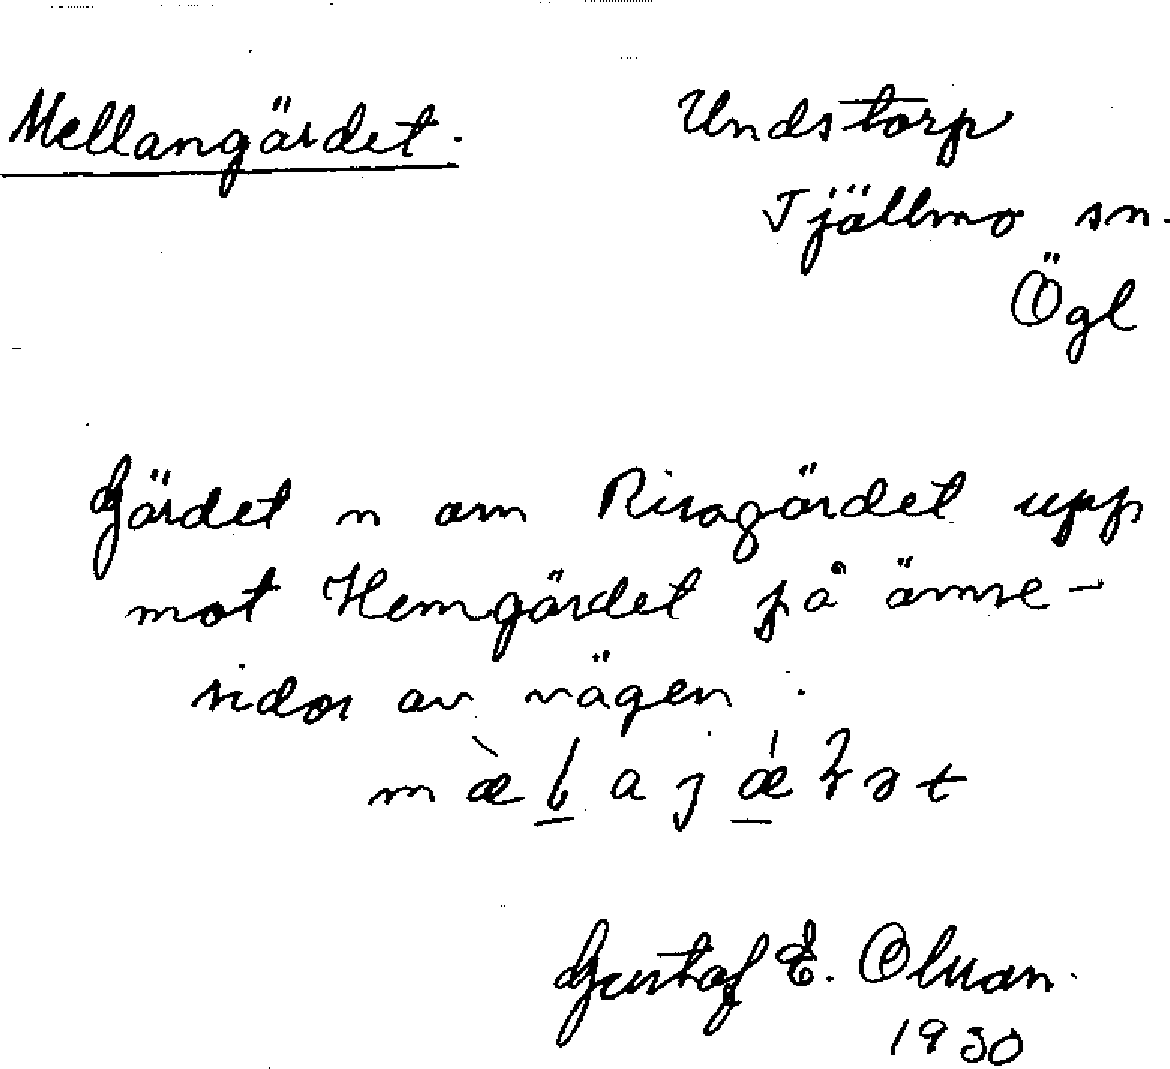 Mellangärdet. Undstorp
Tjällmo sn.
Ögl
Gärdet n om Risagärdet upp
mot Hemgärdet på ömse-
sidor av vägen.
Gustaf E. Olsson.
1930